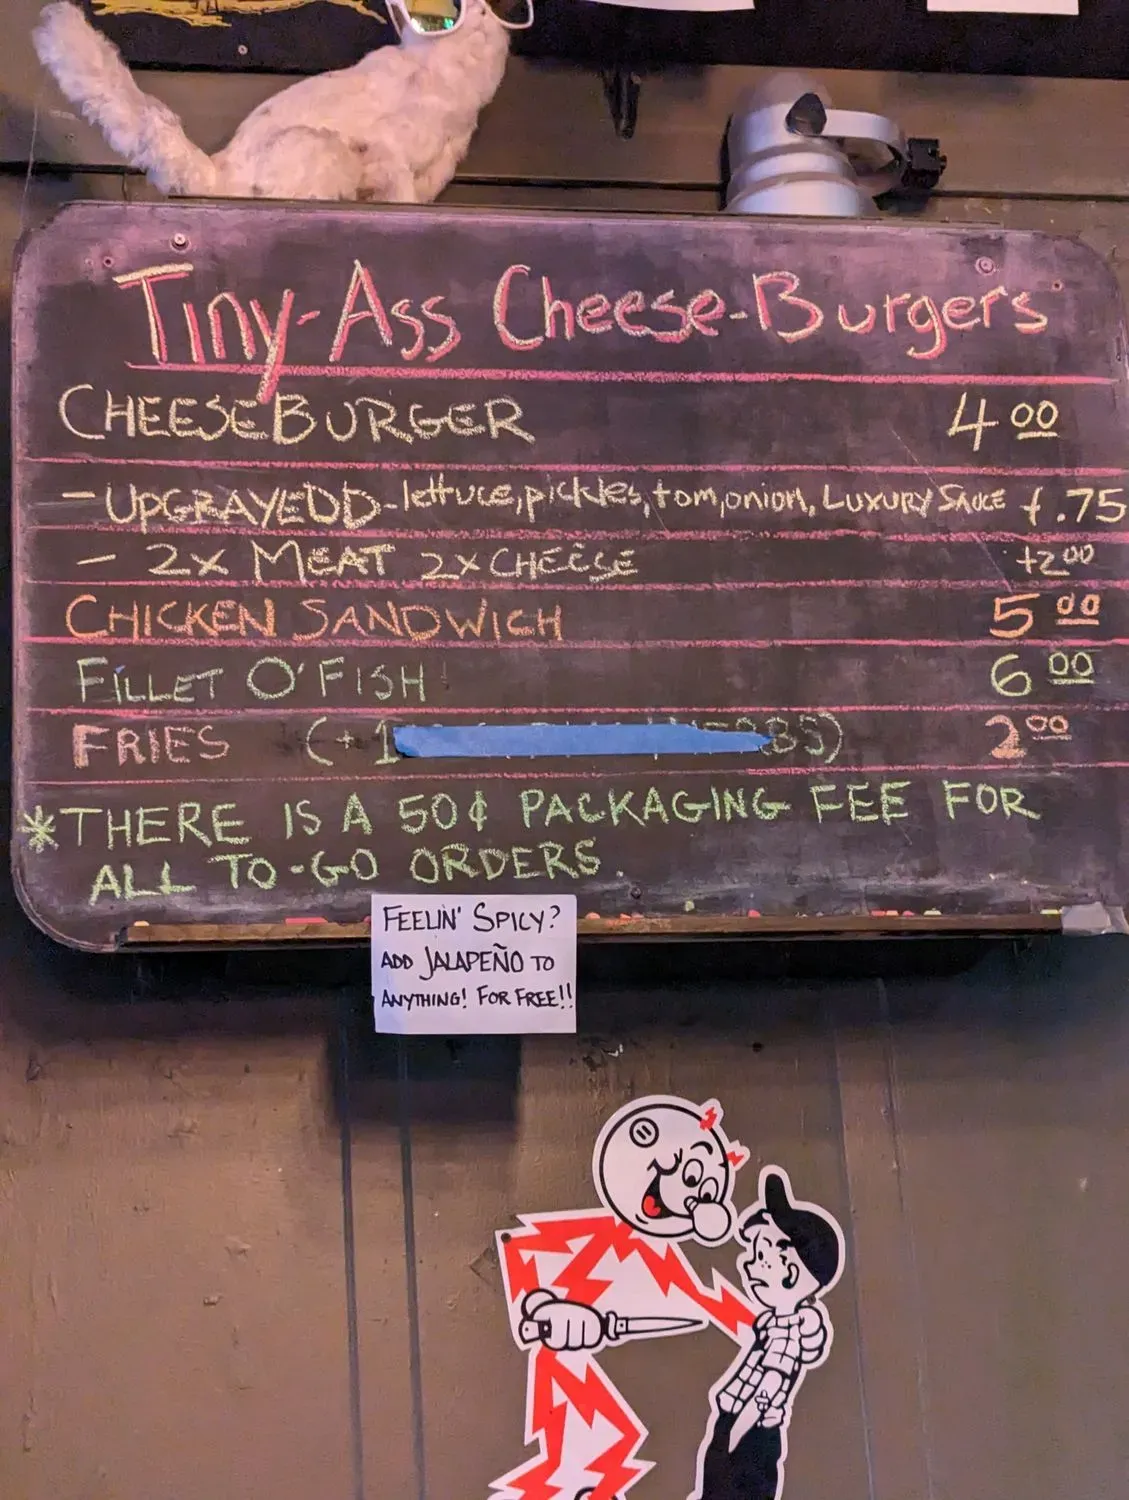 Tiny-Ass Cheese-Burgers
CHEESEBURGER 4.00
- UPGRAYEDD - lettuce, pickles, tom, onion, LUXURY SAUCE +.75
- 2x MEAT 2x CHEESE +2.00
CHICKEN SANDWICH 5.00
FILLET O'FISH 6.00
FRIES (+1 2.00
*THERE IS A 50¢ PACKAGING FEE FOR
ALL TO-GO ORDERS.
FEELIN' SPICY?
ADD JALAPEÑO TO
ANYTHING! FOR FREE!!